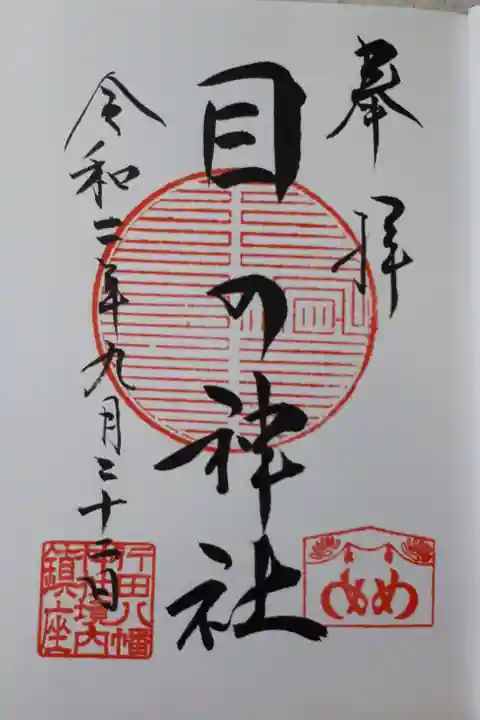 奉拝
目の神社
令和二年九月二十二日
めめ
行田八幡
神社境内
鎮座